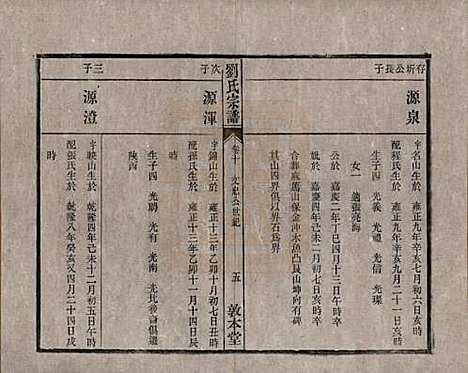 存圻公長子
源泉
字名山生於 雍正九年辛亥九月七日初六日亥時
配程氏生於 雍正九年辛亥九月二十一日亥時
生子四 光義 光禮 光信 光璨
女一 適張堯海
公於 嘉慶二年丁巳四月十三日午時卒
妣於 嘉慶四年己未二月初七日亥時卒
合葬歲萬山保金沖水魚凸艮山坤向有碑
其山四界俱以界石為界
劉氏宗譜
卷十
文紀公世紀
五
敦本堂
次子
源渾
字錦山生於 雍正十三年乙卯十月初七日亥時
配張氏生於 雍正十三年乙卯十一月十四日亥時
生子四 光時 光有 光南 光比移譜俱遷
陝西
三子
源澄
字映山生於 乾隆四年己未十二月初五日午時
配張氏生於 乾隆八年癸亥又四月二十四日戌
時